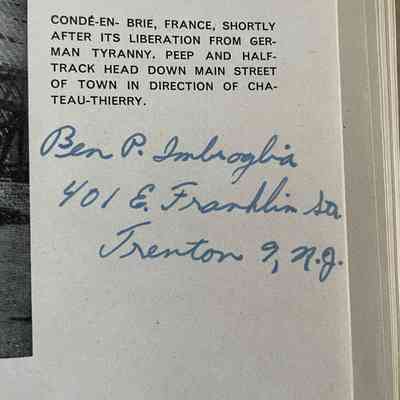 CONDÉ-EN- BRIE, FRANCE, SHORTLY
AFTER ITS LIBERATION FROM GER-
MAN TYRANNY. PEEP AND HALF-
TRACK HEAD DOWN MAIN STREET
OF TOWN IN DIRECTION OF CHA-
TEAU-THIERRY.
Ben P. Imbroglia
401 E. Franklin St.
Trenton 9, N.J.